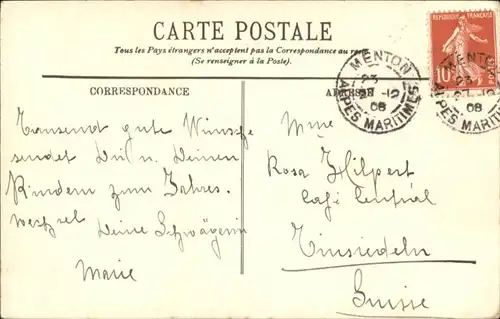 CARTE POSTALE
Tous les Pays étrangers n'acceptent pas la Correspondance au
(Se renseigner à la Poste).
REPUBLIQUE FRANÇAISE
10
MENTON
ALPES MARITIMES
08
MENTON
ALPES MARITIMES
08
CORRESPONDANCE
Tausend gute Wünsche
sendet Dir u. Deinen
Kindern zum Jahres-
wechsel Deine Schwägerin
Marie
Mme
Rosa Hilpert
Café Central
Einsiedeln
Suisse